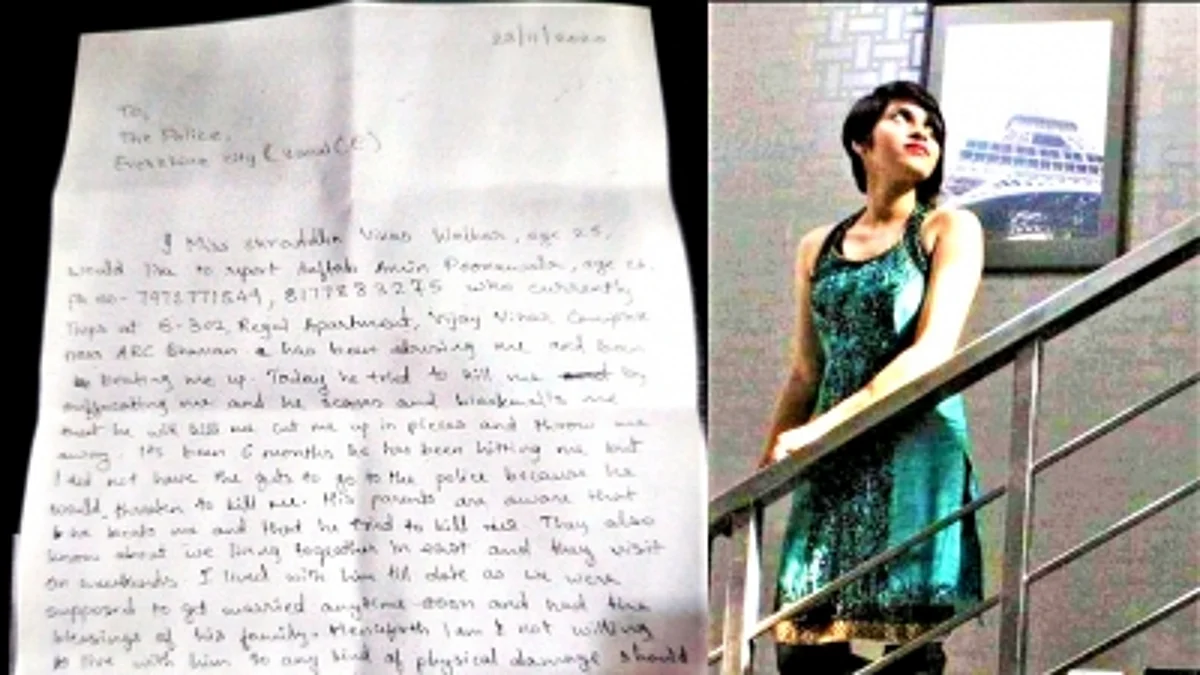 23/11/2020
To,
The Police,
I Miss Shraddha Vikas Walkar, age 25,
would like to report Aaftab Amin Poonawala, age 26,
who currently
lives at B-302, Regal Apartment, Vijay Vihar Complex
near has been abusing me and been
beating me up. Today he tried to kill me by
suffocating me and he scares and blackmails me
that he will kill me cut me up in pieces and throw me
away. Its been 6 months he has been hitting me but
I did not have the guts to go to the police because he
would threaten to kill me. His parents are aware that
he beats me and that he tried to kill me. They also
know about we living together and they visit
on weekends. I lived with him till date as we were
supposed to get married anytime soon and had the
blessings of his family. Henceforth I am not willing
to live with him so any kind of physical damage should